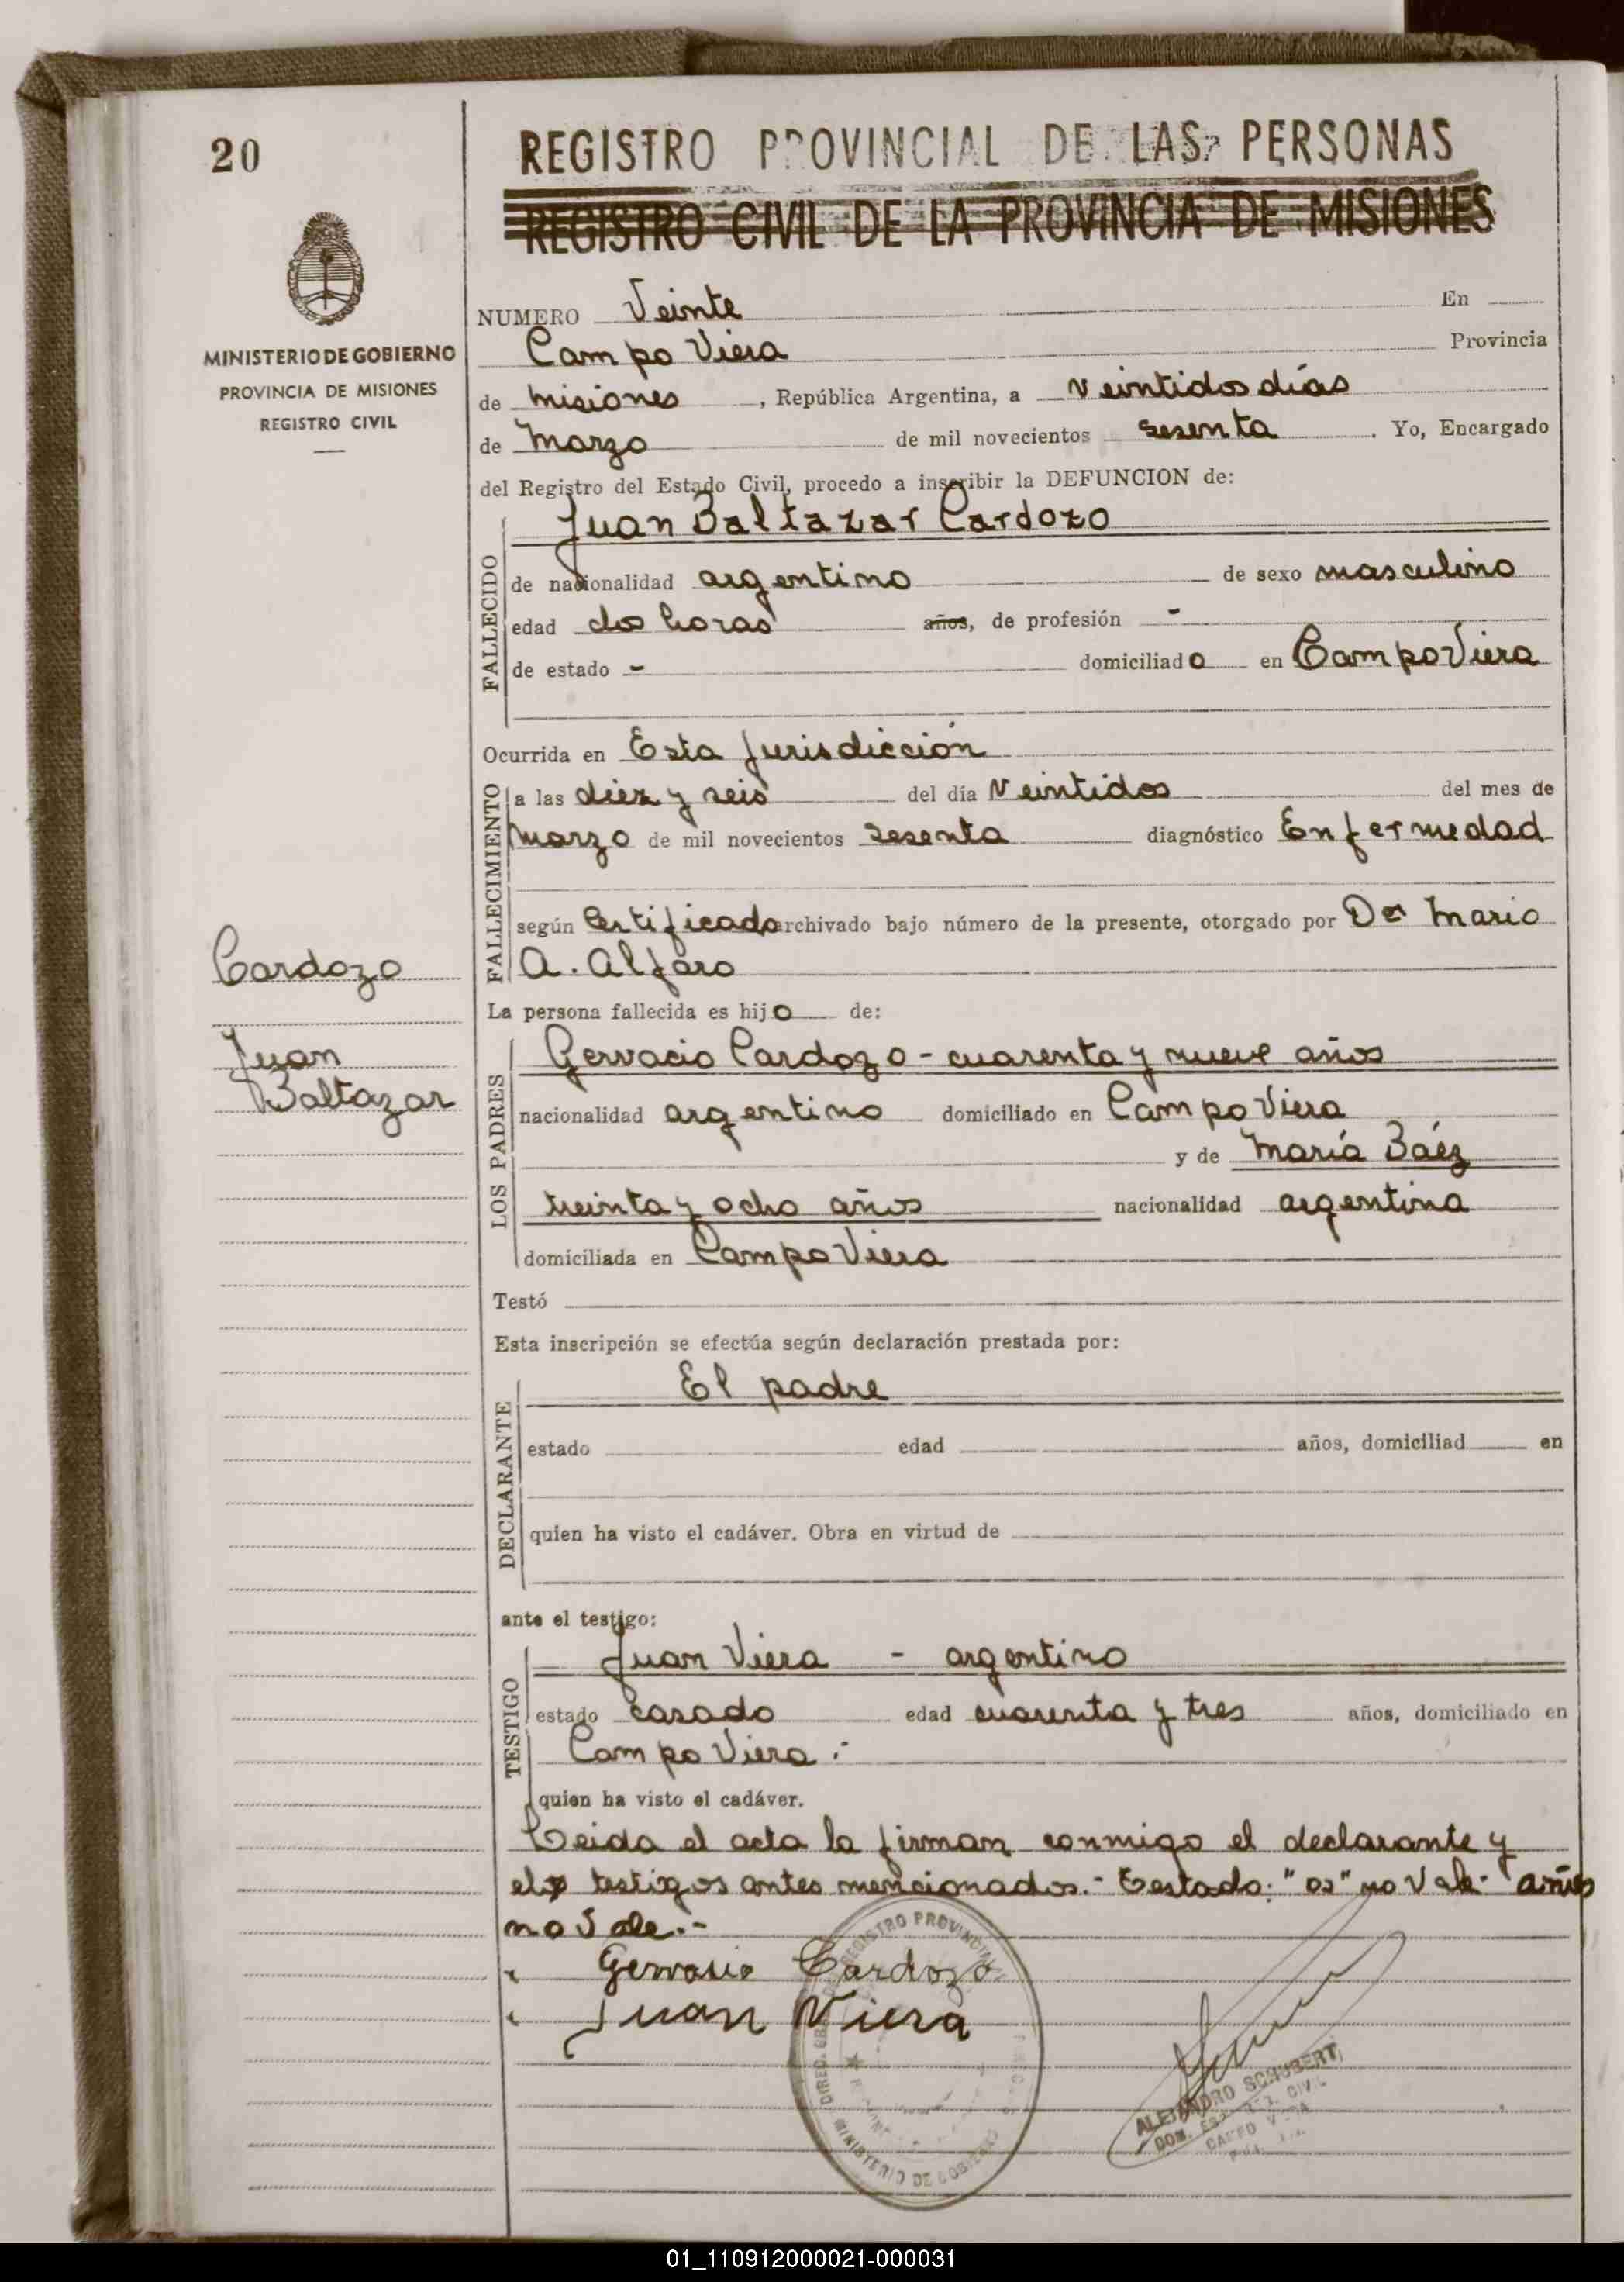 20
REGISTRO PROVINCIAL DE LAS PERSONAS
REGISTRO CIVIL DE LA PROVINCIA DE MISIONES
MINISTERIO DE GOBIERNO
PROVINCIA DE MISIONES
REGISTRO CIVIL
NUMERO Veinte En
Campo Viera Provincia
de Misiones, República Argentina, a veintidos días
de Marzo de mil novecientos sesenta. Yo, Encargado
del Registro del Estado Civil, procedo a inscribir la DEFUNCION de:
FALLECIDO
Juan Baltazar Cardozo
de nacionalidad argentino de sexo masculino
edad dos horas años, de profesión -
de estado - domiciliado en Campo Viera
Ocurrida en Esta Jurisdicción
FALLECIMIENTO
a las diez y seis del día Veintidos del mes de
Marzo de mil novecientos sesenta diagnóstico Enfermedad
según Certificado archivado bajo número de la presente, otorgado por Dr Mario
A. Alfaro
Cardozo
Juan
Baltazar
La persona fallecida es hijo de:
LOS PADRES
Gervacio Cardozo - cuarenta y nueve años
nacionalidad argentino domiciliado en Campo Viera
y de María Báez
treinta y ocho años nacionalidad argentina
domiciliada en Campo Viera
Testó
Esta inscripción se efectúa según declaración prestada por:
DECLARANTE
El padre
estado edad años, domiciliad en
quien ha visto el cadáver. Obra en virtud de
ante el testigo:
TESTIGO
Juan Viera - argentino
estado casado edad cuarenta y tres años, domiciliado en
Campo Viera.-
quien ha visto el cadáver.
Leida el acta la firman conmigo el declarante y
el testigos antes mencionados.- Testado: "os" no Vale- "años
no Vale.-
Gervasio Cardozo
Juan Viera
REGISTRO PROVINCIAL
MINISTERIO DE GOBIERNO
ALEJANDRO SCHUBERT
01_110912000021-000031